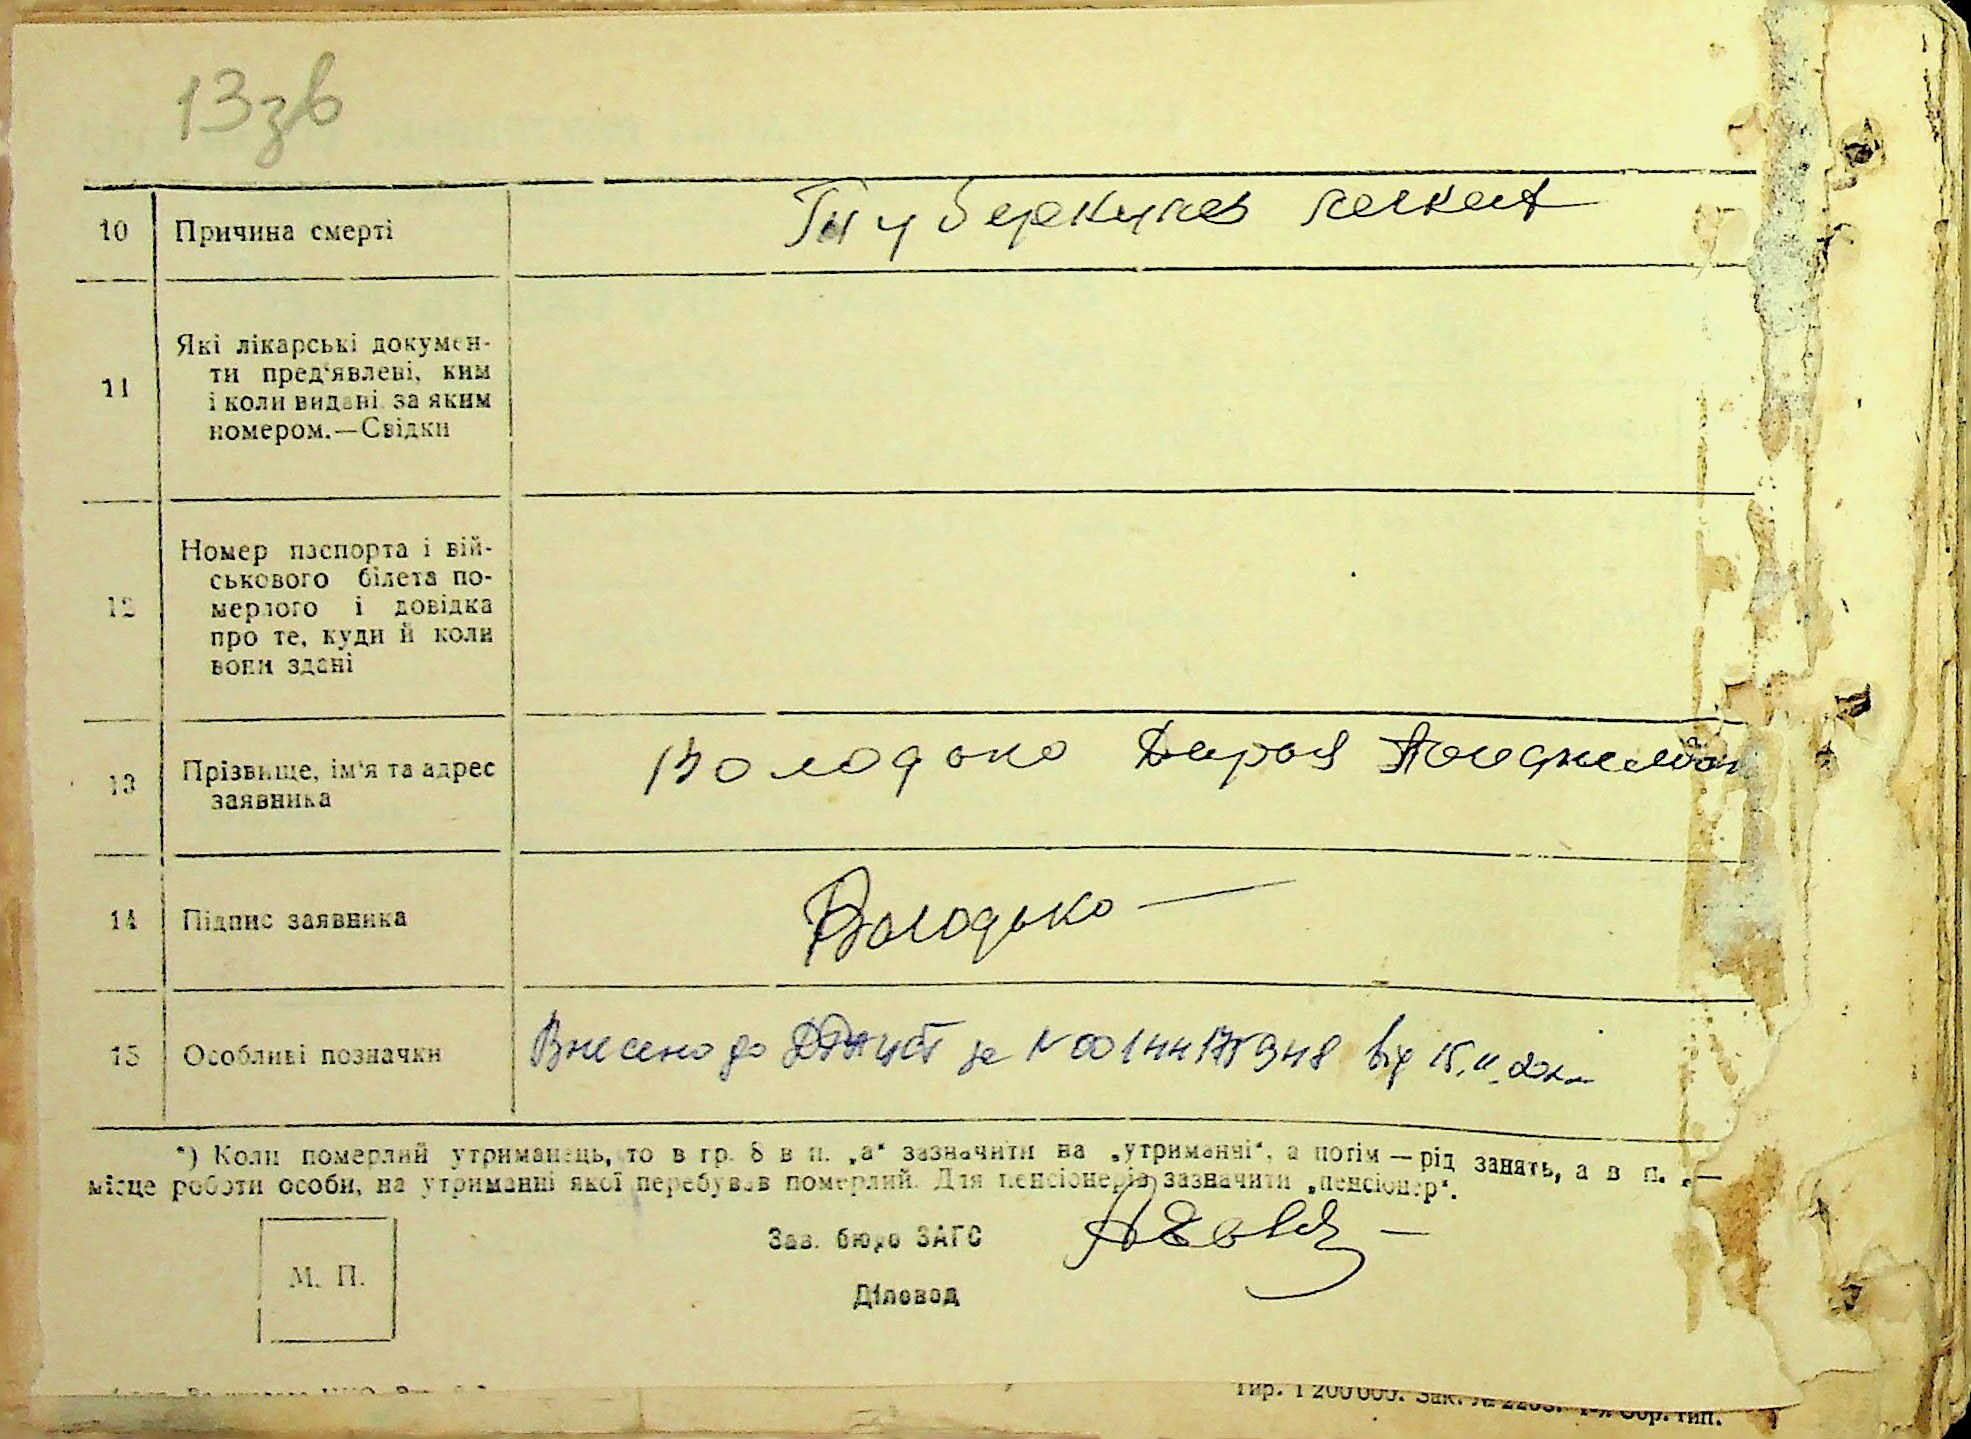 13зв
10 Причина смерті Туберкулез легких
11 Які лікарські докумен-
ти пред'явлені, ким
і коли видані за яким
номером.—Свідки
12 Номер паспорта і вій-
ськового білета по-
мерлого і довідка
про те, куди й коли
вони здані
13 Прізвище, ім'я та адрес Володько Дарья
заявника
14 Підпис заявника Володько
15 Особливі позначки Внесено до за N 00144175948 від 15.11.
*) Коли померлий утриманець, то в гр. 8 в п. „а“ зазначити на „утриманні“, а потім — рід занять, а в п. „—
місце роботи особи, на утриманні якої перебував померлий. Для пенсіонерів зазначити „пенсіонер“.
Зав. бюро ЗАГС
М. П.
Діловод
Тир. 1 200 000. Зак. №